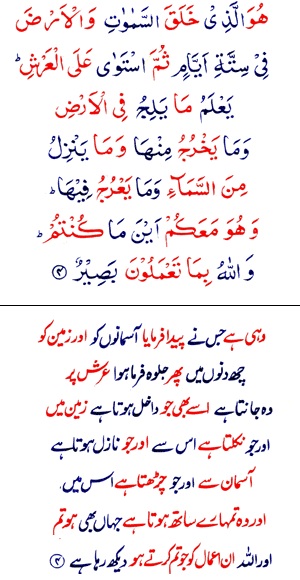 هُوَالَّذِیْ خَلَقَ السَّمٰوٰتِ وَالْاَرْضَ
فِیْ سِتَّةِ اَیَّامٍ ثُمَّ اسْتَوٰی عَلَی الْعَرْشِ ؕ
یَعْلَمُ مَا یَلِجُ فِی الْاَرْضِ
وَمَا یَخْرُجُ مِنْهَا وَمَا یَنْزِلُ
مِنَ السَّمَآءِ وَمَا یَعْرُجُ فِیْهَا ؕ
وَهُوَ مَعَكُمْ اَیْنَ مَا كُنْتُمْ ؕ
وَاللهُ بِمَا تَعْمَلُوْنَ بَصِیْرٌ ﴿۴﴾
وہی ہے جس نے پیدا فرمایا آسمانوں کو اور زمین کو
چھ دنوں میں پھر جلوہ فرما ہوا عرش پر
وہ جانتا ہے اسے بھی جو داخل ہوتا ہے زمین میں
اور جو نکلتا ہے اس سے اور جو نازل ہوتا ہے
آسمان سے اور جو چڑھتا ہے اس میں
اور وہ تمہارے ساتھ ہوتا ہے جہاں بھی ہو تم
اور اللہ ان اعمال کو جو تم کرتے ہو دیکھ رہا ہے ﴿۴﴾